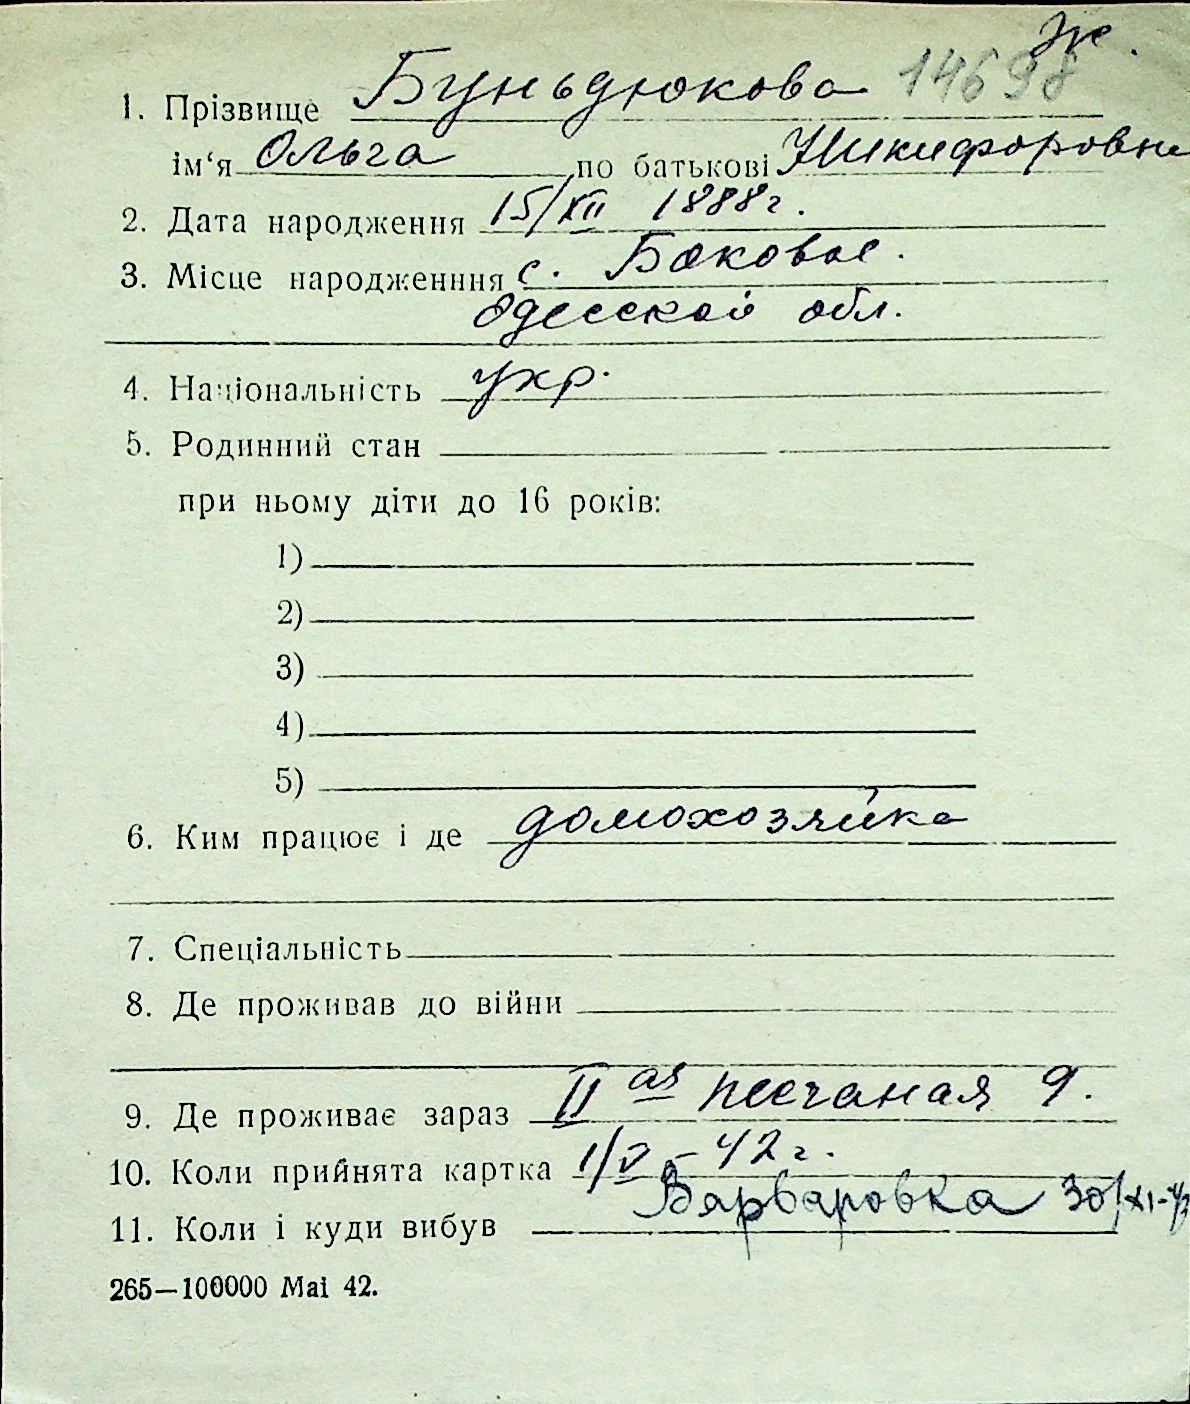 Же.
1. Прізвище Буньдюкова 14698
ім‘я Ольга по батькові Никифоровн
2. Дата народження 15/XII 1888 г.
3. Місце народженння с. Боковое.
Одесской обл.
4. Національність укр.
5. Родинний стан
при ньому діти до 16 років:
1)
2)
3)
4)
5)
6. Ким працює і де домохозяйка
7. Спеціальність
8. Де проживав до війни
9. Де проживає зараз II ая песчаная 9.
10. Коли прийнята картка 1/V – 42 г.
11. Коли і куди вибув Варваровка 30/XI-42
265—100000 Mai 42.